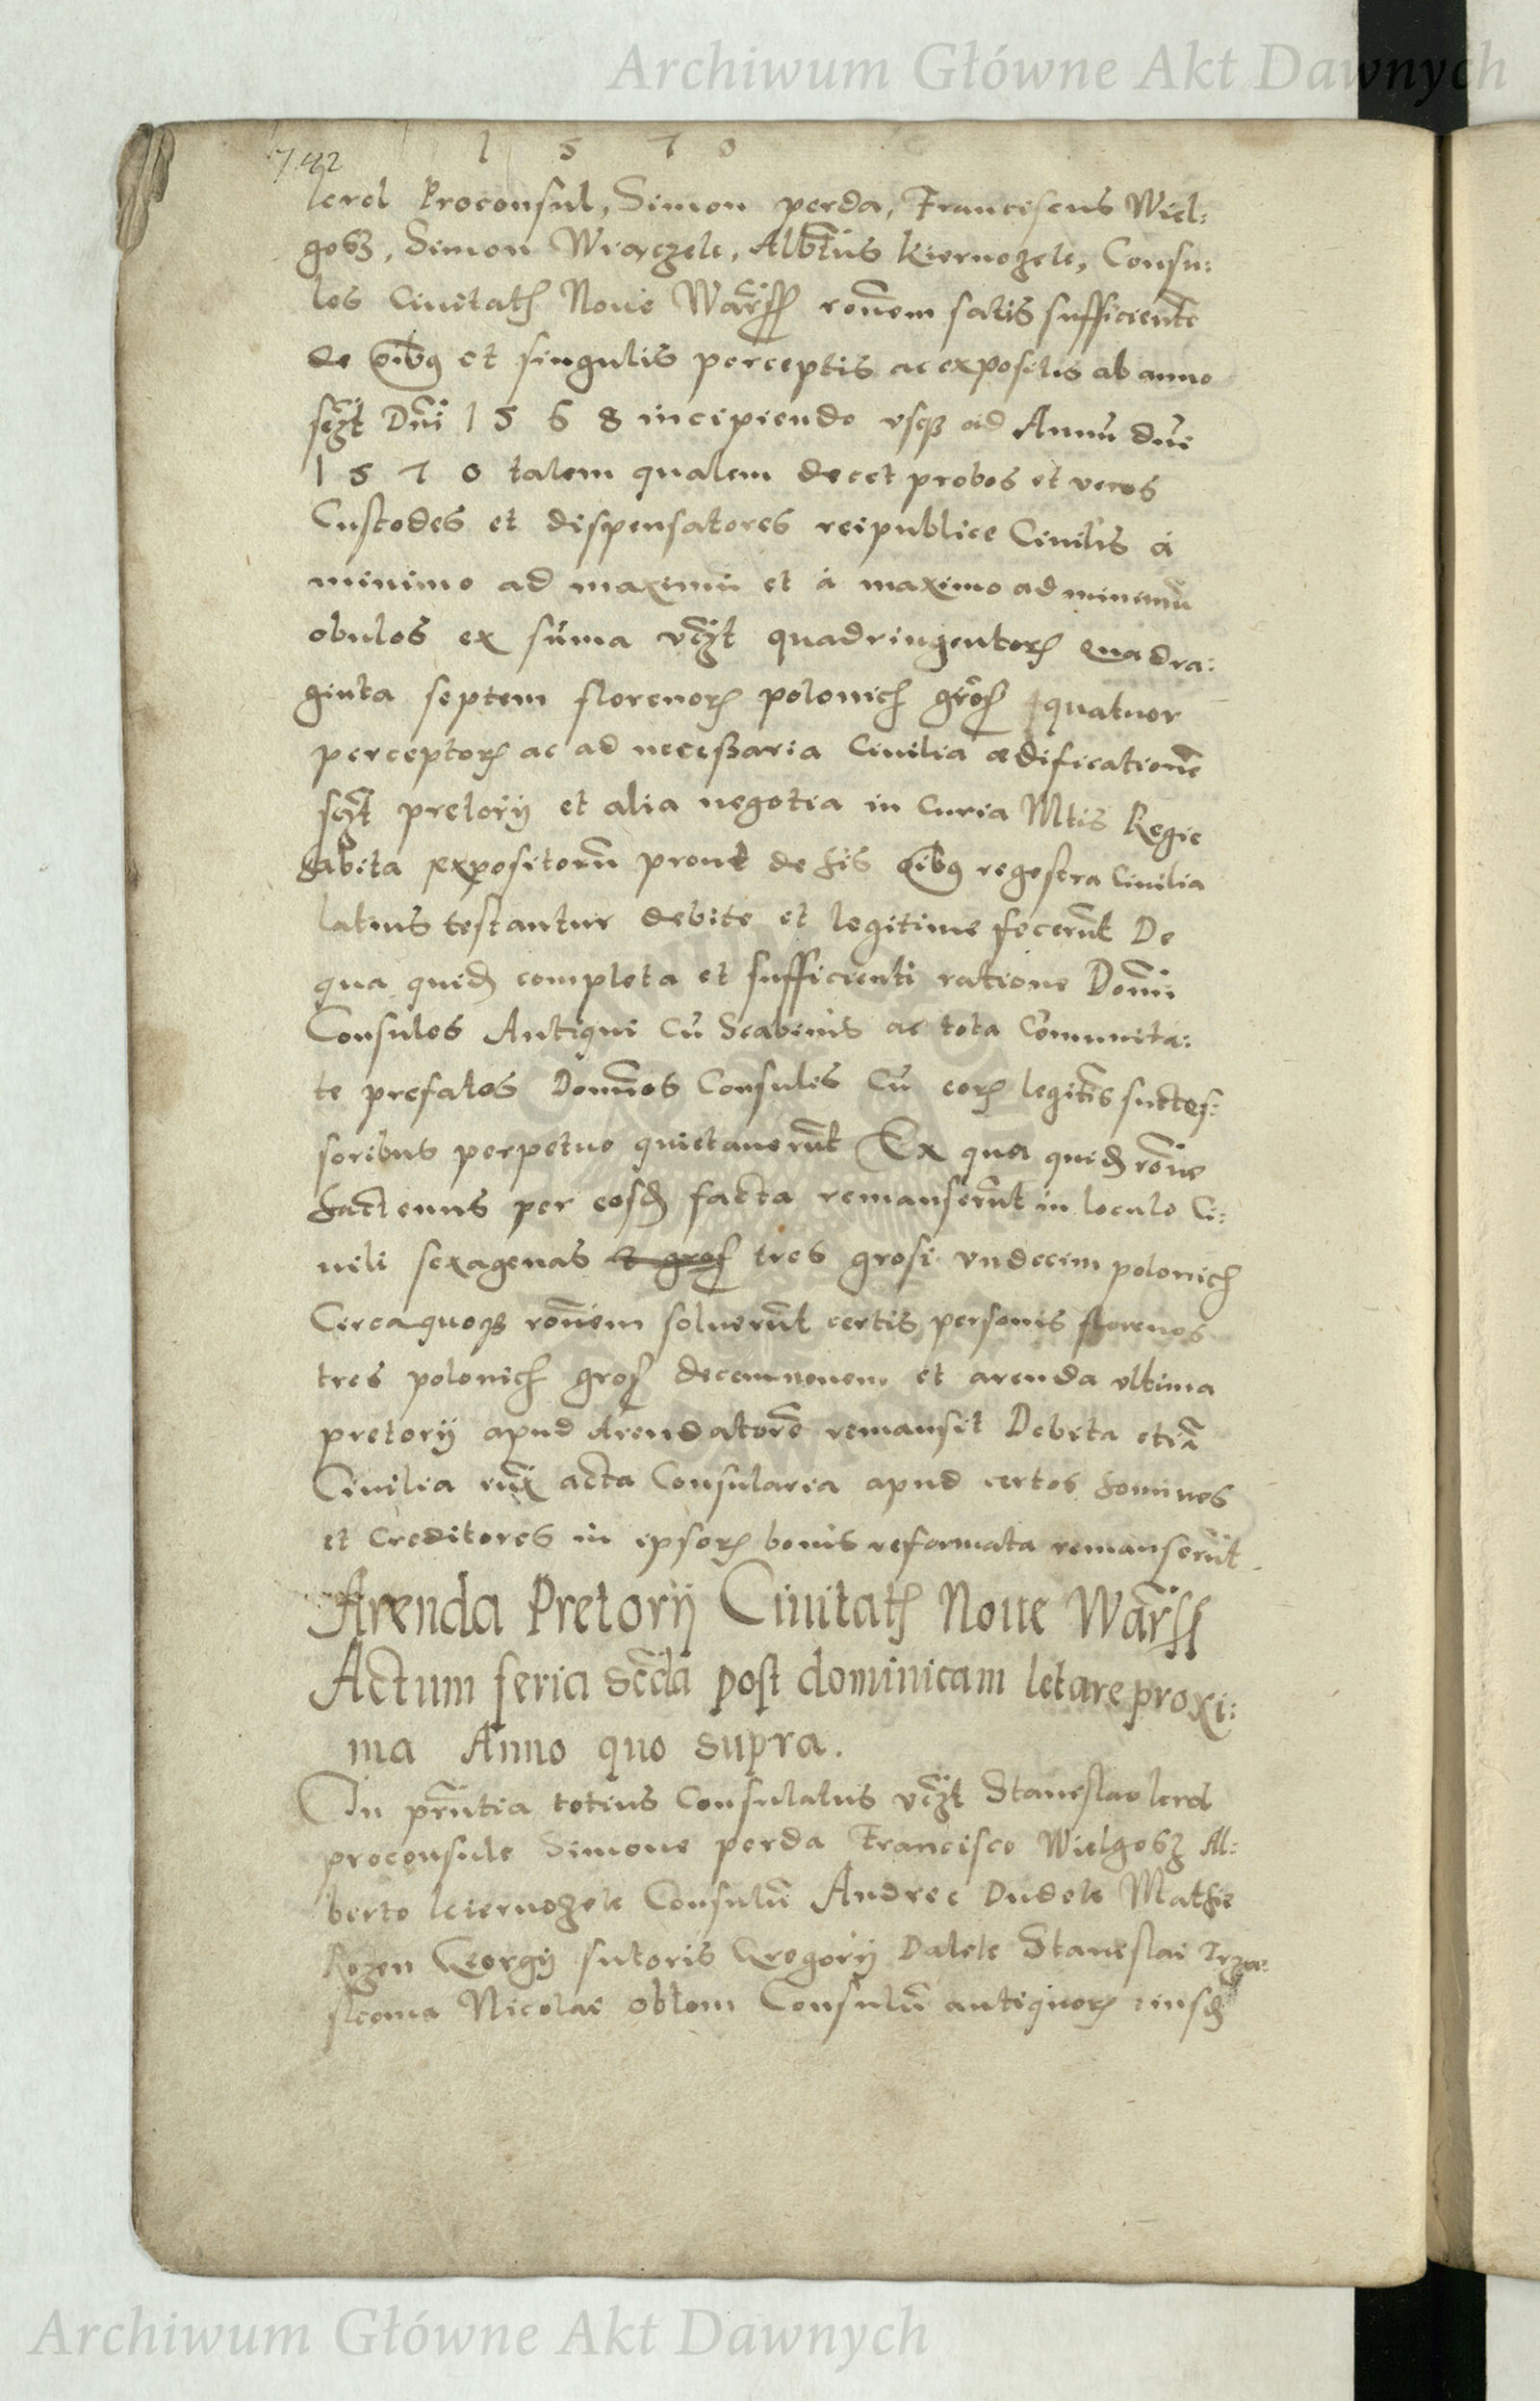 Archiwum Główne Akt Dawnych
742
1 5 7 0
lerd Proconsul, Simon perda, Franciscus Wiel:
gosz, Simon Wiaczek, Albtus Kiernozek, Consu:
les Civitat Nove Warss ronem satis sufficiente
de oibus et singulis perceptis ac expositis ab anno
sczt Dni 1 5 6 8 incipiendo usq ad Annu dne
1 5 7 0 talem qualem decet probos et veros
Custodes et dispensatores reipublice Civilis à
minimo ad maximu et à maximo ad minimu
obulos ex suma vczt quadringentor quadra:
ginta septem florenor polonich gros quatuor
perceptor ac ad necessaria Civilia aedificatione
sczt pretorij et alia negotia in Curia Mtis Regie
habita expositoru prout de his oibus regestra Civilia
latius testantur debite et legitime fecerut De
qua quide completa et sufficienti ratione Domi
Consules Antiqui Cu Scabinis ac tota Comunita:
te prefatos Domnos Consules Cu eor legitis succes:
soribus perpetuo quietaverut Ex qua quide rone
hactenus per eosd facta remanserut in loculo Ci:
vili sexagenas tres grosi undecim polonich
Circa quoq ronem solverut certis personis florenos
tres polonich gros decemnovem et arenda ultima
pretorij apud Arendatore remansit Debita etia
Civilia iux acta Consularia apud certos homines
et Creditores in ipsor bonis reformata remanserut
Arenda Pretorij Civitat Nove Warss
Actum feria scda post dominicam letare proxi:
ma Anno quo supra.
In prntia totius Consulatus vczt Stanislao lerd
proconsule Simone perda Francisco Wielgosz Al:
berto kiernozek Consulu Andree Dudek Mathie
Rozen Georgij sutoris Gregorij Dalek Stanislai Trza:
skoma Nicolai oblom Consulu antiquor eiusd
Archiwum Główne Akt Dawnych